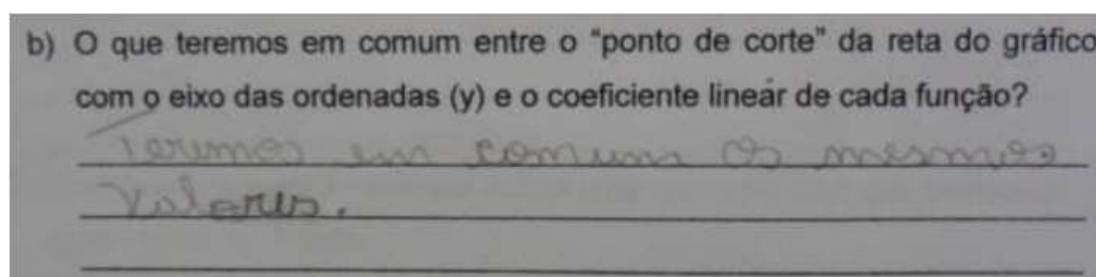 b) O que teremos em comum entre o “ponto de corte” da reta do gráfico
com o eixo das ordenadas (y) e o coeficiente linear de cada função?
Teremos em comum os mesmos
Valores.